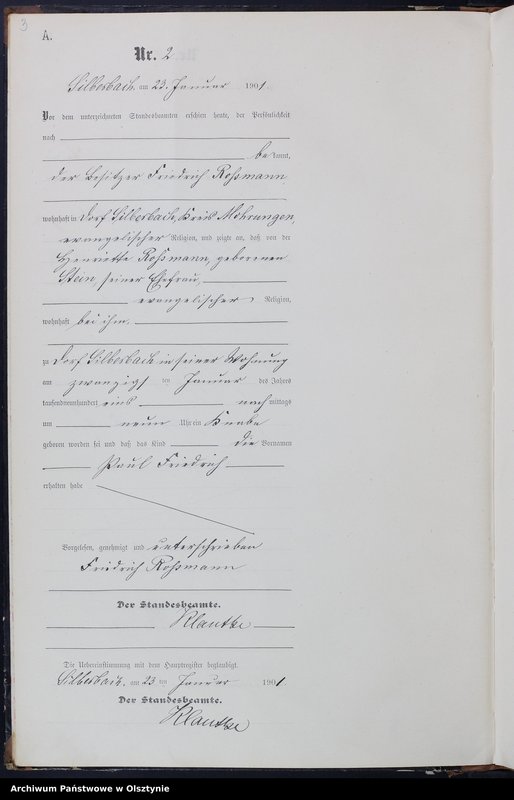 3
A.
Nr. 2
Silberbach, am 23. Januar 1901.
Vor dem unterzeichneten Standesbeamten erschien heute, der Persönlichkeit
nach
bekannt,
der Besitzer Friedrich Roßmann
wohnhaft in Dorf Silberbach, Kreis Mohrungen,
evangelischer Religion, und zeigte an, daß von der
Henriette Roßmann, geborenen
Stein, seiner Ehefrau,
evangelischer Religion,
wohnhaft bei ihm,
zu Dorf Silberbach in seiner Wohnung
am zwanzigsten Januar des Jahres
tausendneunhundert eins nachmittags
um neun Uhr ein Knabe
geboren worden sei und daß das Kind die Vornamen
Paul Friedrich
erhalten habe
Vorgelesen, genehmigt und unterschrieben
Friedrich Roßmann
Der Standesbeamte.
Klautke
Die Uebereinstimmung mit dem Hauptregister beglaubigt.
Silberbach, am 23 ten Januar 1901
Der Standesbeamte.
Klautke
Archiwum Państwowe w Olsztynie